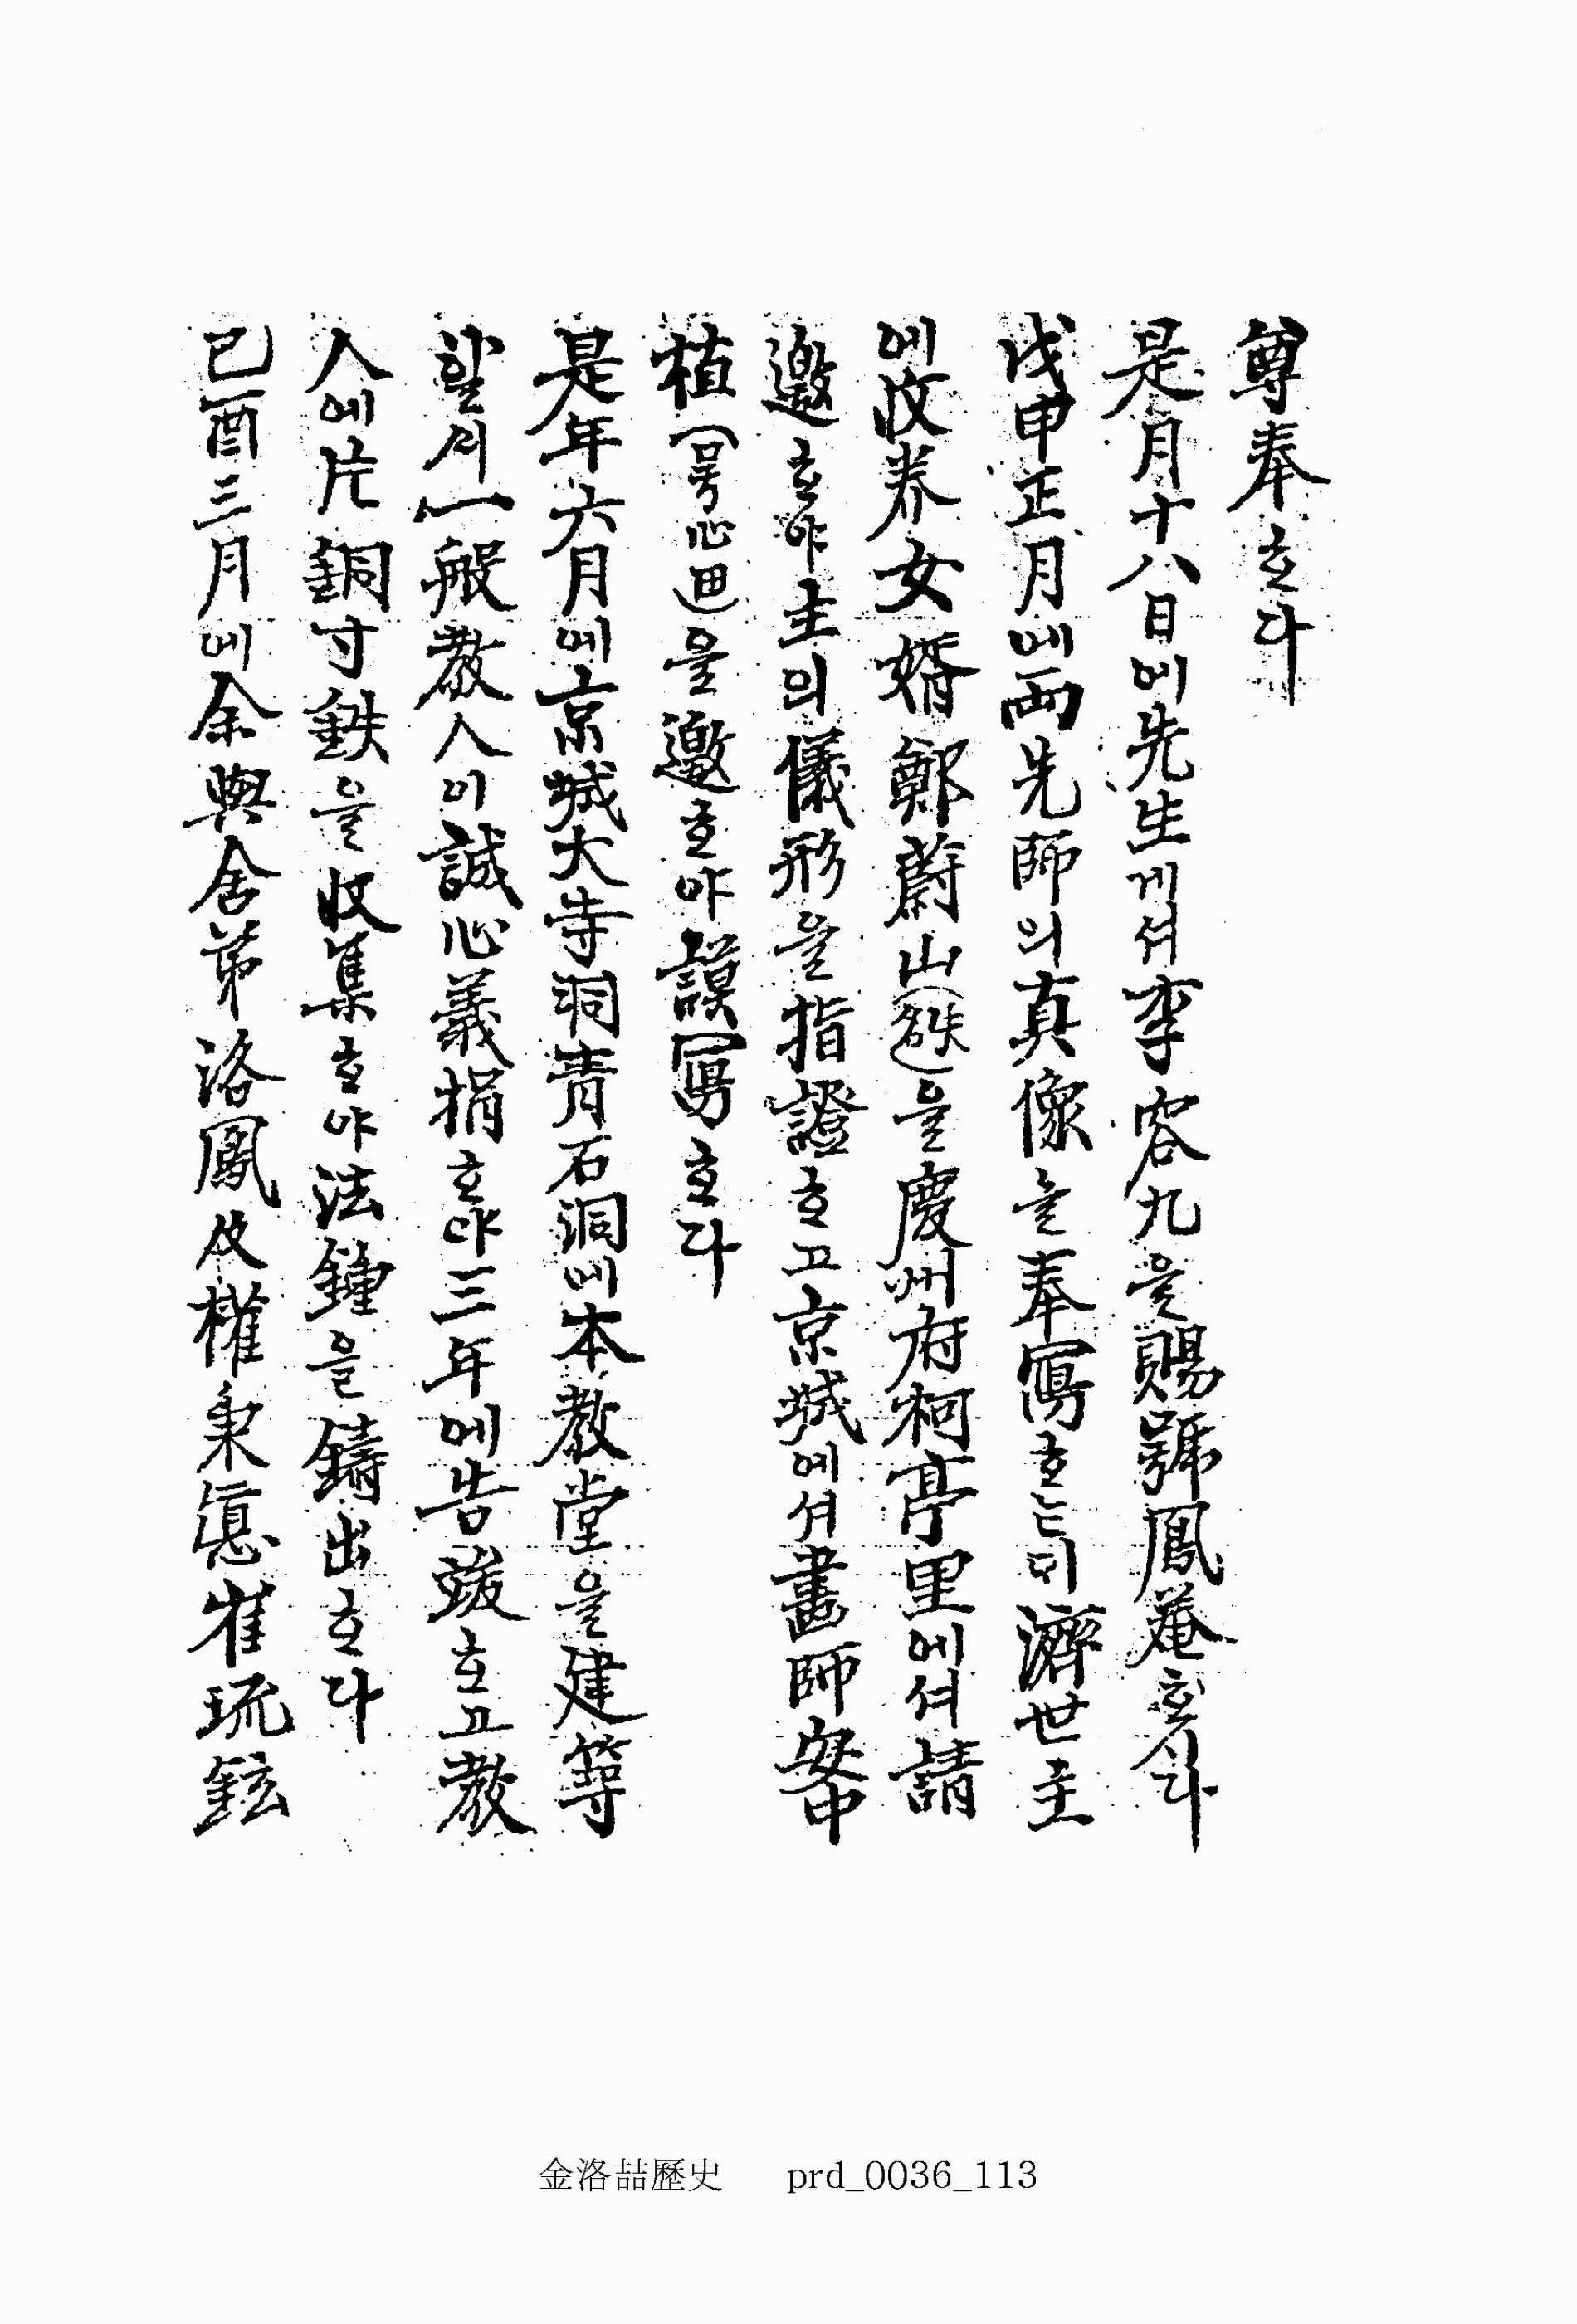 尊奉ᄒᆞ다
是月十八日에先生게셔李容九을賜號鳳菴ᄒᆞᄉᆞ다
戊申正月에両先師의真像을奉寫ᄒᆞᄂᆞᄃᆡ濟世主
에収养女婿鄭蔚山(名姓)을慶州府柯亭里에셔請
邀ᄒᆞ야主의儀形을指證ᄒᆞ고京城에셔畵師安中
植(号心田)을邀ᄒᆞ야謨寫ᄒᆞ다
是年六月에京城大寺洞靑石洞에本教堂을建築
할ᄉᆡ一般教人이誠心義捐ᄒᆞ야三年에告竣ᄒᆞ고教
人에片銅寸鉄을収集ᄒᆞ야法鍾을鑄出ᄒᆞ다
己酉三月에余與舍弟洛鳳及權秉悳崔琉鉉
金洛喆歷史 prd_0036_113